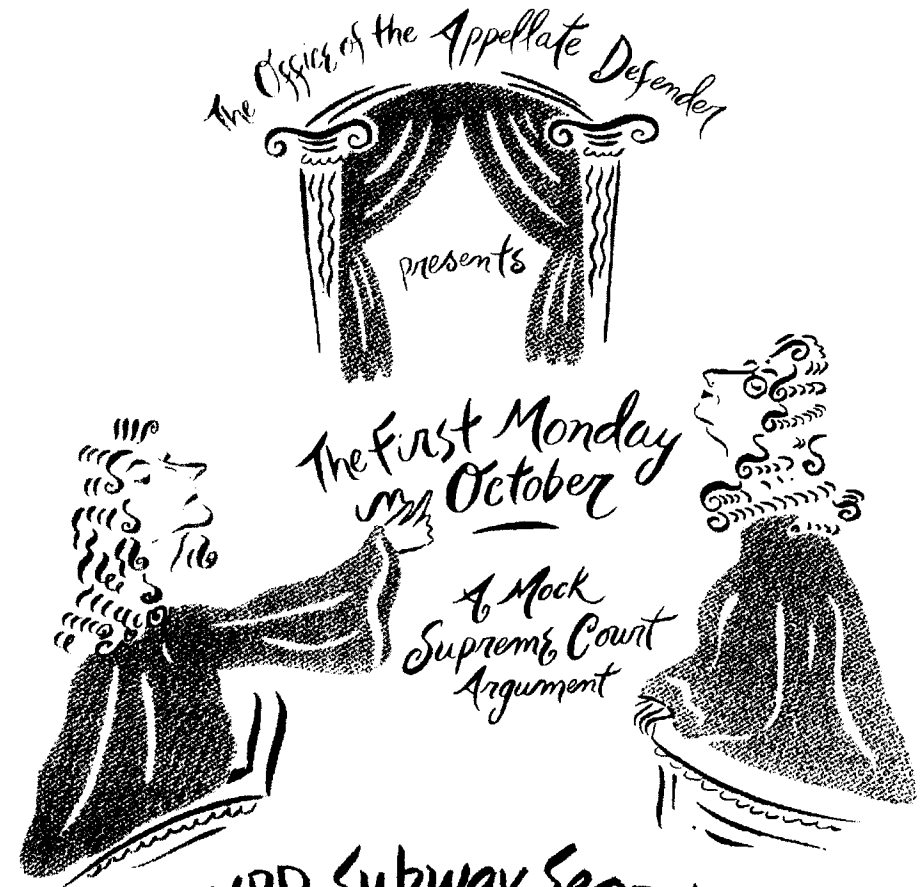 The Office of the Appellate Defender
presents
The First Monday
October
A Mock
Supreme Court
Argument
Subway